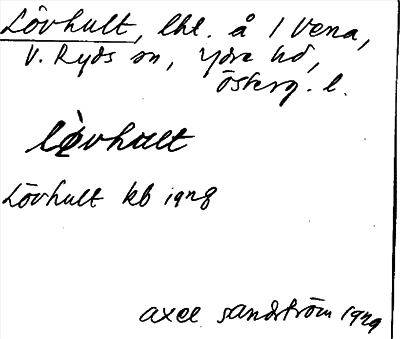 Lövhult, lht. å 1 Vena,
V. Ryds sn, Ydre hd,
Österg. l.
lòvhult
Lövhult kb 1928
Axel Sandström 1929